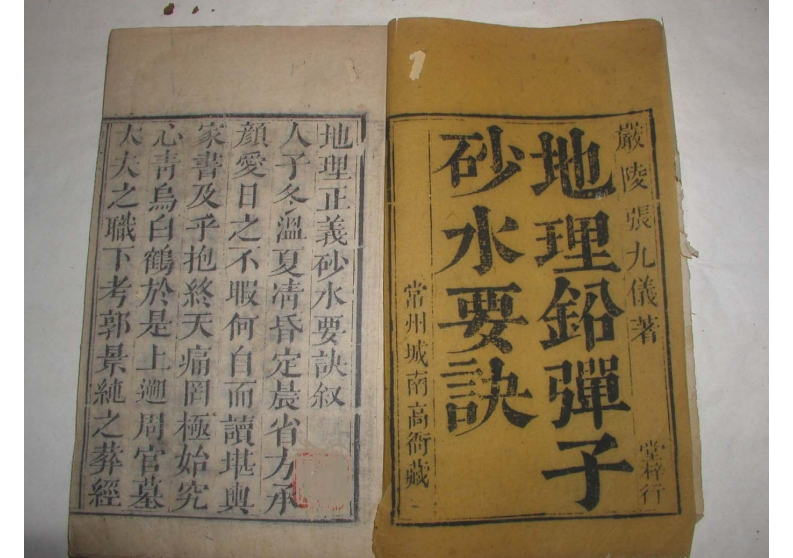 嚴陵張九儀著
地理鉛彈子
砂水要訣
堂梓行
常州城南高衙藏
地理正義砂水要訣叙
人子冬溫夏凊昏定晨省方承
顏愛日之不暇何自而讀堪輿
家書及乎抱終天痛罔極始究
心靑烏白鶴於是上遡周官墓
大夫之職下考郭景純之葬經